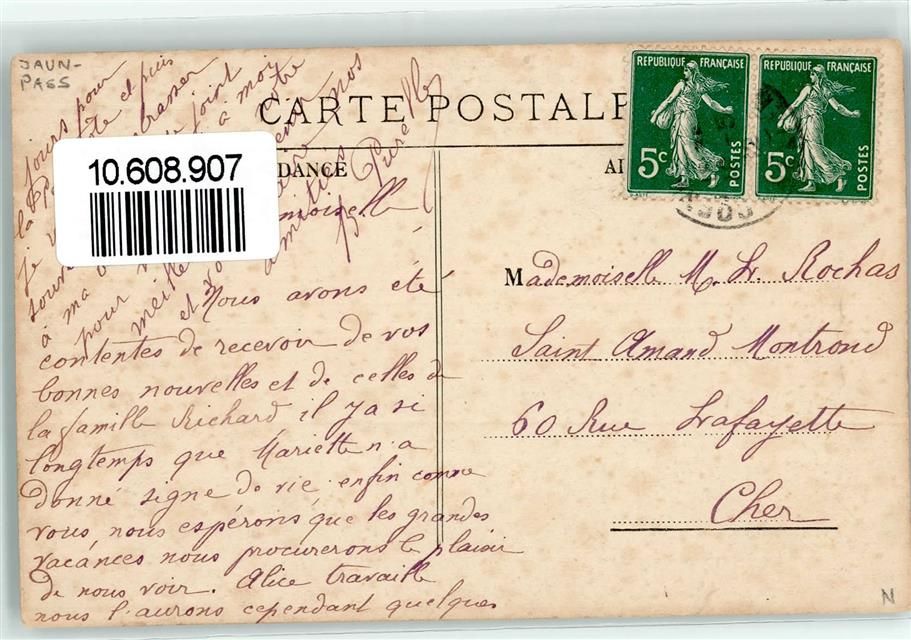 JAUN-
PASS
CARTE POSTALE
DANCE
10.608.907
REPUBLIQUE FRANÇAISE
5c
POSTES
REPUBLIQUE FRANÇAISE
5c
POSTES
Mademoiselle M. Rochas
Saint Amand Montrond
60 Rue Lafayette
Cher
moiselle
Nous avons été
contentes de recevoir de vos
bonnes nouvelles et de celles de
la famille Richard il y a si
longtemps que Mariette n'a
donné signe de vie. enfin comme
vous, nous espérons que les grandes
vacances nous procurerons le plaisir
de nous voir. Alice travaille
nous l'aurons cependant quelques
jours pour
la
et puis
je
embrasser
joint
à ma
à moi
pour
votre
mère
nos
et
amitiés
N